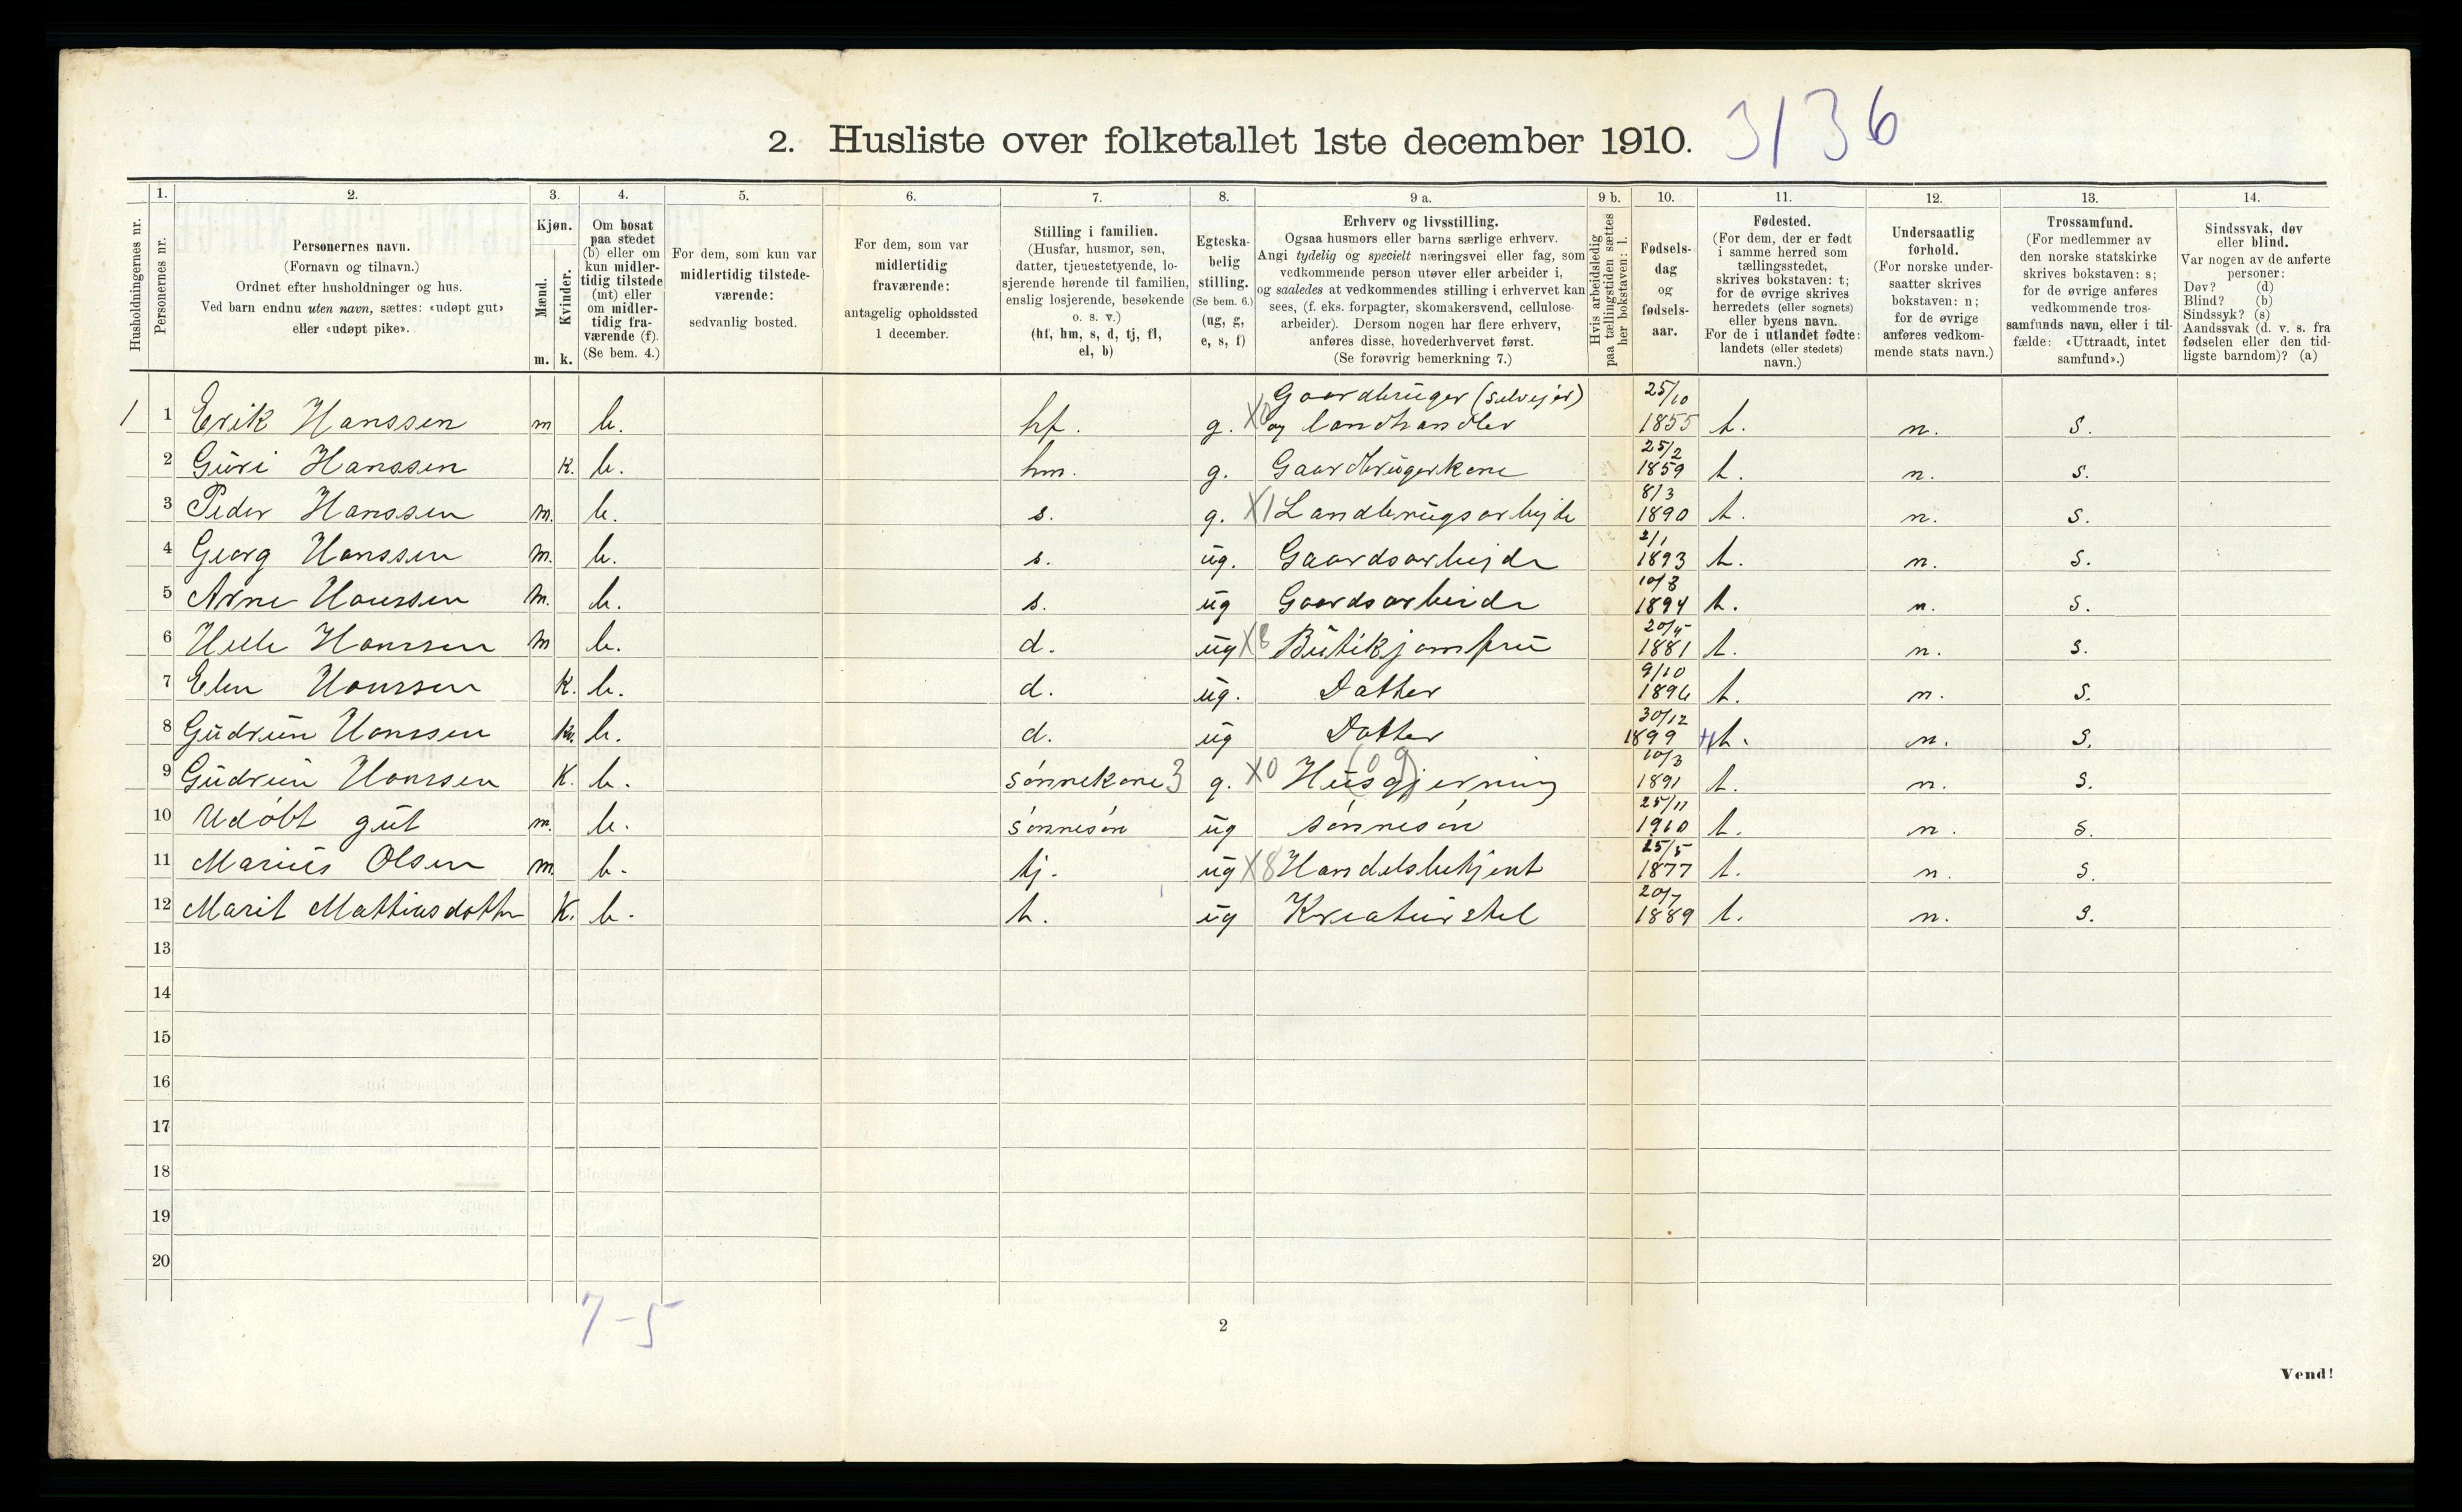 2. Husliste over folketallet 1ste december 1910. 3136
Husholdningernes nr.
1.
Personernes nr.
2.
Personernes navn.
(Fornavn og tilnavn.)
Ordnet efter husholdninger og hus.
Ved barn endnu uten navn, sættes: «udøpt gut»
eller «udøpt pike».
3.
Kjøn.
Mænd.
Kvinder.
m. k.
4.
Om bosat
paa stedet
(b) eller om
kun midler-
tidig tilstede
(mt) eller
om midler-
tidig fra-
værende (f).
(Se bem. 4.)
5.
For dem, som kun var
midlertidig tilstede-
værende:
sedvanlig bosted.
6.
For dem, som var
midlertidig
fraværende:
antagelig opholdssted
1 december.
7.
Stilling i familien.
(Husfar, husmor, søn,
datter, tjenestetyende, lo-
sjerende hørende til familien,
enslig losjerende, besøkende
o. s. v.)
(hf, hm, s, d, tj, fl,
el, b)
8.
Egteska-
belig
stilling.
(Se bem. 6.)
(ug, g,
e, s, f)
9 a.
Erhverv og livsstilling.
Ogsaa husmors eller barns særlige erhverv.
Angi tydelig og specielt næringsvei eller fag, som
vedkommende person utøver eller arbeider i,
og saaledes at vedkommendes stilling i erhvervet kan
sees, (f. eks. forpagter, skomakersvend, cellulose-
arbeider). Dersom nogen har flere erhverv,
anføres disse, hovederhvervet først.
(Se forøvrig bemerkning 7.)
9 b.
Hvis arbeidsledig
paa tællingstiden sættes
her bokstaven: l.
10.
Fødsels-
dag
og
fødsels-
aar.
11.
Fødested.
(For dem, der er født
i samme herred som
tællingsstedet,
skrives bokstaven: t;
for de øvrige skrives
herredets (eller sognets)
eller byens navn.
For de i utlandet fødte:
landets (eller stedets)
navn.)
12.
Undersaatlig
forhold.
(For norske under-
saatter skrives
bokstaven: n;
for de øvrige
anføres vedkom-
mende stats navn.)
13.
Trossamfund.
(For medlemmer av
den norske statskirke
skrives bokstaven: s;
for de øvrige anføres
vedkommende tros-
samfunds navn, eller i til-
fælde: «Uttraadt, intet
samfund».)
14.
Sindssvak, døv
eller blind.
Var nogen av de anførte
personer:
Døv? (d)
Blind? (b)
Sindssyk? (s)
Aandssvak (d. v. s. fra
fødselen eller den tid-
ligste barndom)? (a)
Gaardbruger (selvejer) 25/10
1 1 Erik Hanssen m b. hf. g. X0 og landhandler 1855 t. n. s.
25/2
2 Guri Hanssen k. b. hm. g. Gaardbrugerkone 1859 t. n. s.
8/3
3 Peder Hanssen m. b. s. g. X1 Landbrugsarbejde 1890 t. n. s.
2/1
4 Georg Hanssen m. b. s. ug. Gaardsarbejde 1893 t. n. s.
10/8
5 Arne Hanssen m. b. s. ug Gaardsarbeide 1894 t. n. s.
20/5
6 Hanssen m b. d. ug X8 Butikjomfru 1881 t. n. s.
9/10
7 Elen Hanssen K. b. d. ug. Datter 1896 t. n. s.
30/12
8 Gudrun Hanssen K. b. d. ug Datter 1899 t. n. s.
10/3
9 Gudrun Hanssen K. b. sønnekone 3 g. X0 (09) Husgjerning 1891 t. n. s.
25/11
10 Udøbt gut m. b. sønnesøn ug sønnesøn 1910 t. n. s.
25/5
11 Marius Olsen m. b. tj. ug X8 Handelsbetjent 1877 t. n. s.
20/7
12 Marit Mathiasdotter K. b. t. ug Kreaturstel 1889 t. n. s.
13
14
15
16
17
18
19
20
7-5
2
Vend!